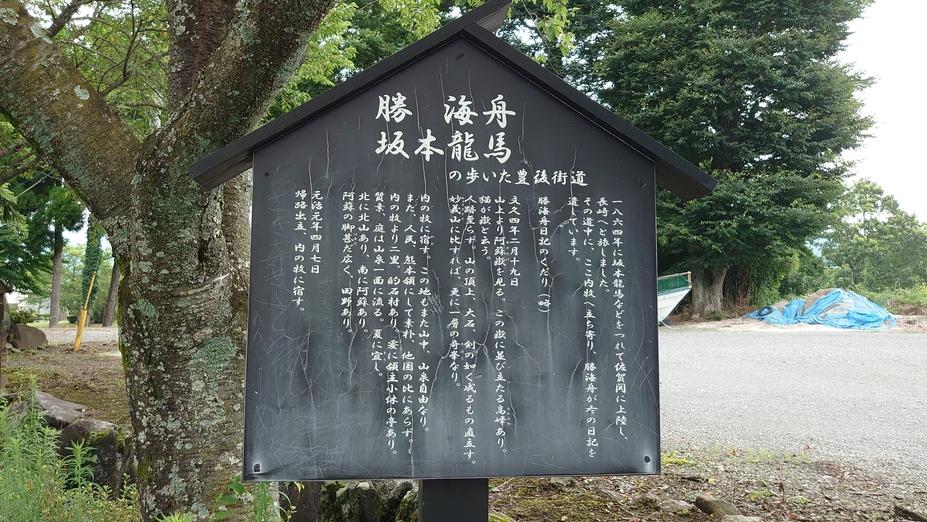 勝海舟
坂本龍馬
の歩いた豊後街道
一八六四年に坂本龍馬などをつれて佐賀関に上陸し、
長崎へと旅しました。
その道中に、ここ内牧へ立ち寄り、勝海舟が次の日記を
遺しています。
勝海舟日記のくだり（略）
文久四年二月十九日
山上より阿蘇嶽を見る。この嶽に並び立たる高峰あり。
猫が嶽と云う。
人跡至らず。山の頂上、大石、剣の如く成るもの直立す。
妙義山に比すれば、更に一層の奇峯なり。
内の牧に宿す。この地もまた山中、山泉自由なり。
また、人民、熊本領にして素朴、他国の比にあらず。
内の牧より二里、的石村あり。爰に領主小休の亭あり。
質素、庭は山泉一面に流る。夏に宜し。
北に北山あり、南に阿蘇あり。
阿蘇の脚甚だ広く、田野あり。
元治元年四月七日
帰路出立、内の牧に宿す。